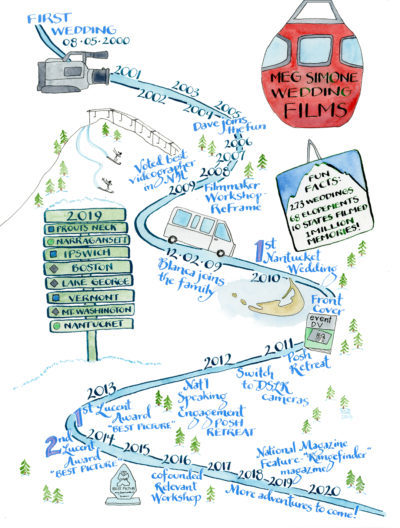 FIRST
WEDDING
08·05·2000
MEG SIMONE
WEDDING
FILMS
2001
2002
2003
2004
2005
Dave joins
the fun
2006
2007
2008
2009
Voted best
videographer
in NH
Filmmaker
Workshop
ReFrame
FUN
FACTS:
273 WEDDINGS
68 ELOPEMENTS
10 STATES FILMED
1 MILLION
MEMORIES!
2019
PROUTS NECK
NARRAGANSETT
IPSWICH
BOSTON
LAKE GEORGE
VERMONT
MT. WASHINGTON
NANTUCKET
12·02·09
Blanca joins
the family
1st
Nantucket
Wedding
2010
Front
Cover
event
DV
2011
Posh
Retreat
2012
Switch
to DSLR
cameras
Nat'l
Speaking
Engagement
POSH
RETREAT
2013
1st Lucent
Award
"BEST PICTURE"
2nd
Lucent
Award
"BEST PICTURE"
2014
2015
2016
cofounded
Relevant
Workshop
2017
2018
2019
2020
National Magazine
Feature-"Rangefinder"
magazine
More adventures to come!
BEST PICTURE